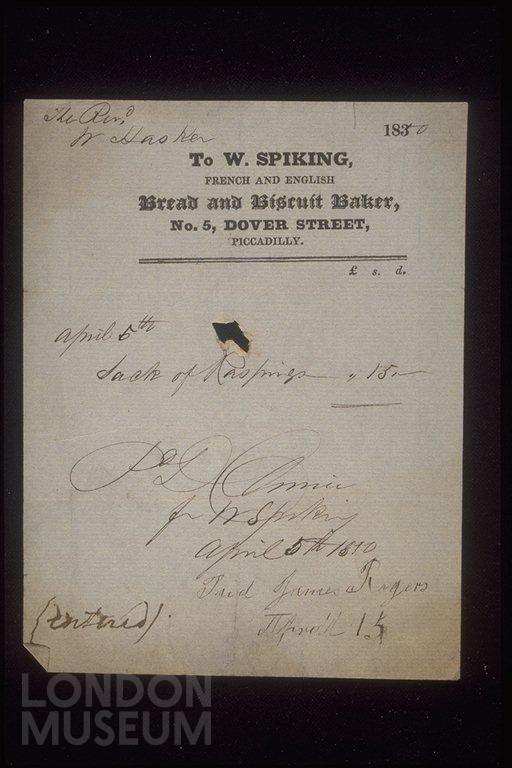 The Revd
W Hasker
1830
To W. SPIKING,
FRENCH AND ENGLISH
Bread and Biscuit Baker,
No. 5, DOVER STREET,
PICCADILLY.
£ s. d.
April 5th
Sack of Raspings „ 15 „
Pd
for W Spiking
April 5th
Paid James Rogers
April 15
(Entered).
LONDON
MUSEUM